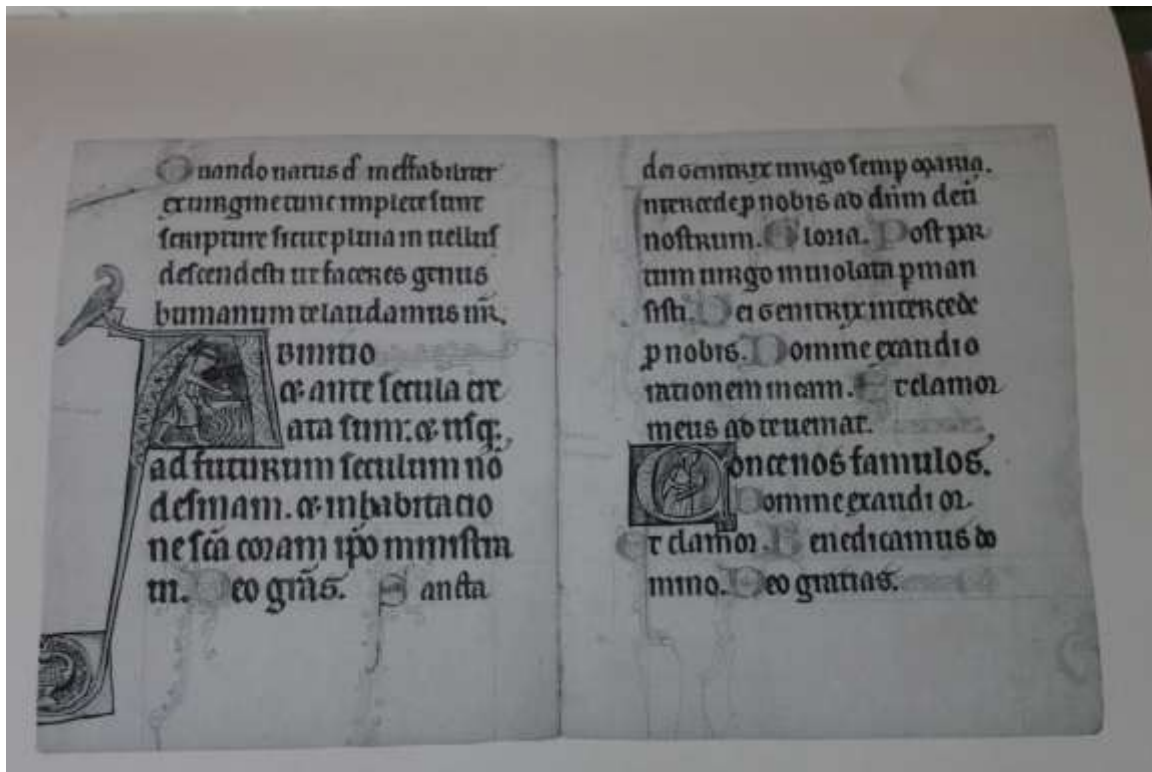 Quando natus e᷒ ineffabiliter
ex uirgine tunc implete sunt
scripture sicut pluuia in uellus
descendisti ut faceres genus
humanum te laudamus
Ab initio
et ante secula cre
ata sum: et usq;
ad futurum seculum nō
desinam. et in habitatio
ne scā coram ip̄o ministra
ui. Deo grās. Sancta
dei genitrix uirgo semp maria.
intercede p nobis ad dnm deū
nostrum. Gloria. Post par
tum uirgo inuiolata pman
sisti. Dei genitrix intercede
p nobis. Domine exaudi o
rationem meam. Et clamor
meus ad te ueniat.
Concenos famulos.
Domine exaudi or.
Et clamor. Benedicamus do
mino. Deo gratias.